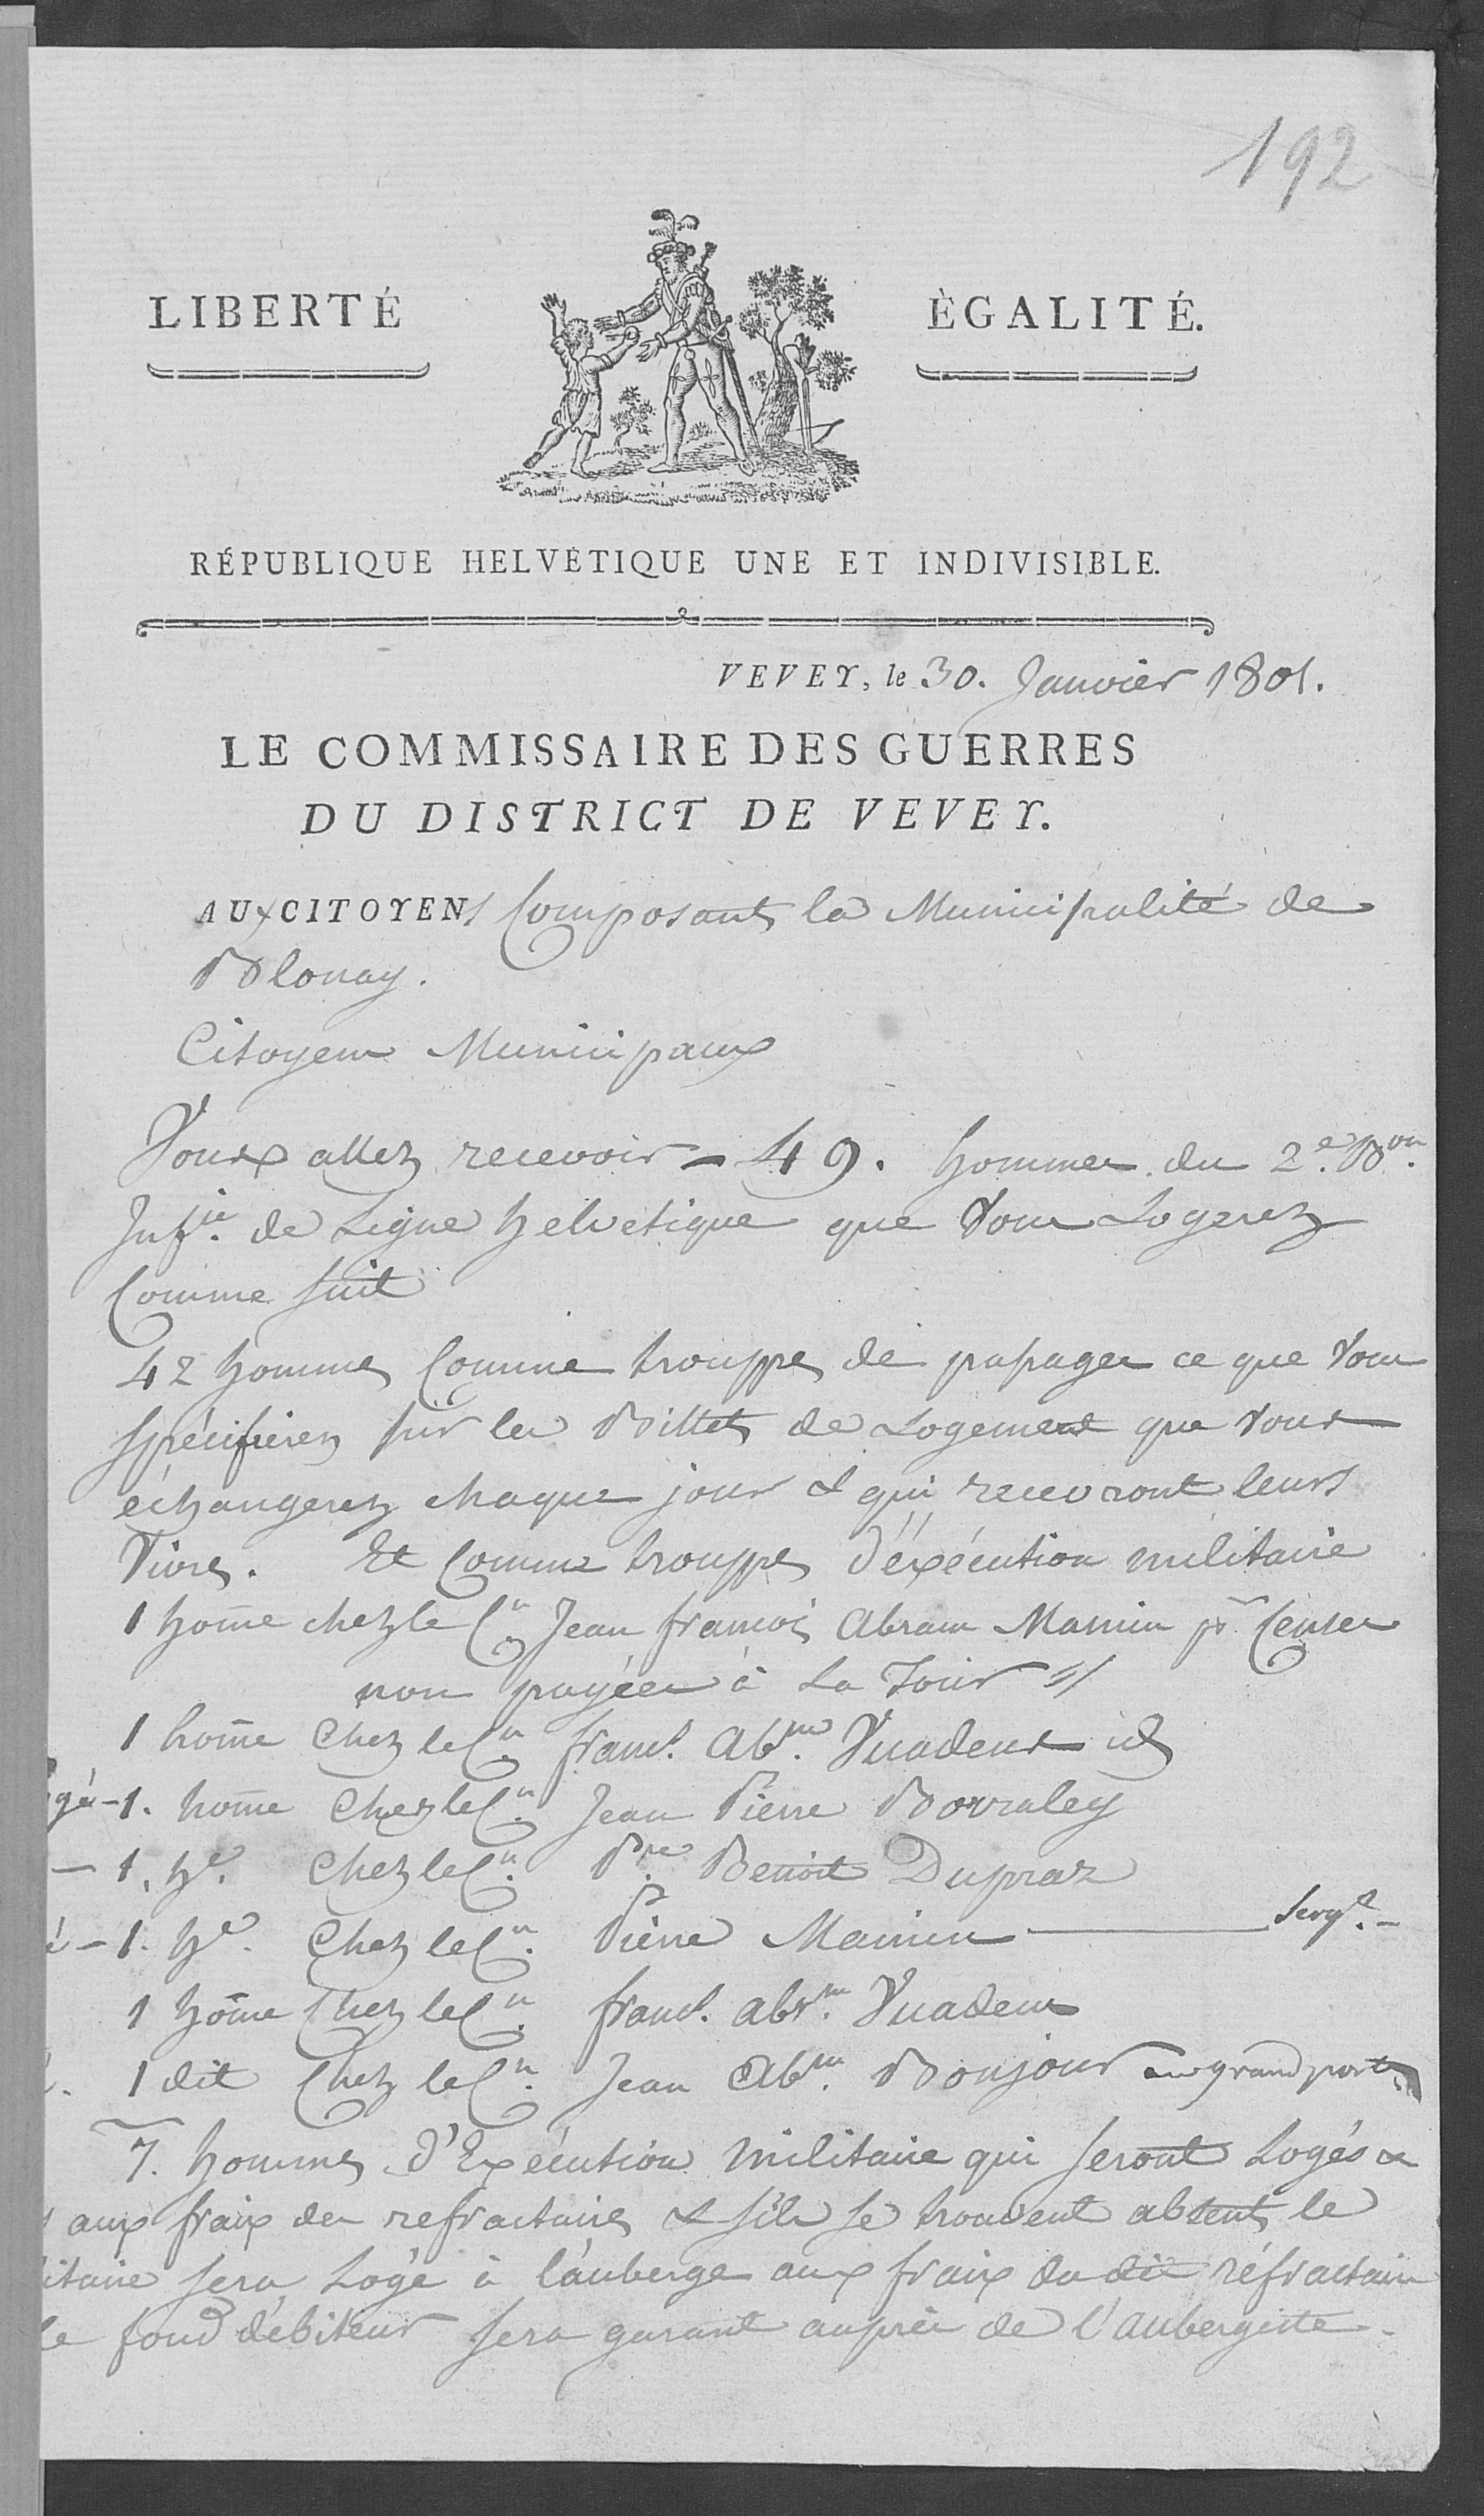 192
LIBERTÉ ÈGALITÉ.
RÉPUBLIQUE HELVÉTIQUE UNE ET INDIVISIBLE.
VEVEY, le 30. Janvier 1801.
LE COMMISSAIRE DES GUERRES
DU DISTRICT DE VEVEY.
AUX CITOYENS Composants la Municipalité de
Blonay.
Citoyens Municipaux
Vous allez recevoir - 49. hommes du 2.e B.on
Inf.ie de Ligne helvetique que Vous Logerez
Comme suit
42 hommes Comme trouppes de passages ce que Vous
spécifierez sur les Billets de Logement que vous
échangerez chaque jour & qui recevront leurs
Vivres. Et comme trouppes d'éxécution militaire
1 home chez le C.n Jean francois Abram Mamin pr Censes
non payées à La Tour //
1 home Chez le C.n franç. Ab.m Vuadens id
gé - 1. home Chez le C.n Jean Pierre Bovraley
- 1. h.e Chez le C.n P.re Benoit Dupraz
é - 1. h.e Chez le C.n Pierre Mamin Serg.t -
1 home Chez le C.n franç. abr.m Vuadens
1 dit Chez le C.n Jean Ab.m Bonjour
7. hommes d'Exécution militaire qui seront Logés &
aux fraix des refractaires & s'ils se trouvent absents le
itaire sera Logé à l'auberge aux fraix du dit réfractaire
le fond débiteur sera garant auprès de l'aubergiste.